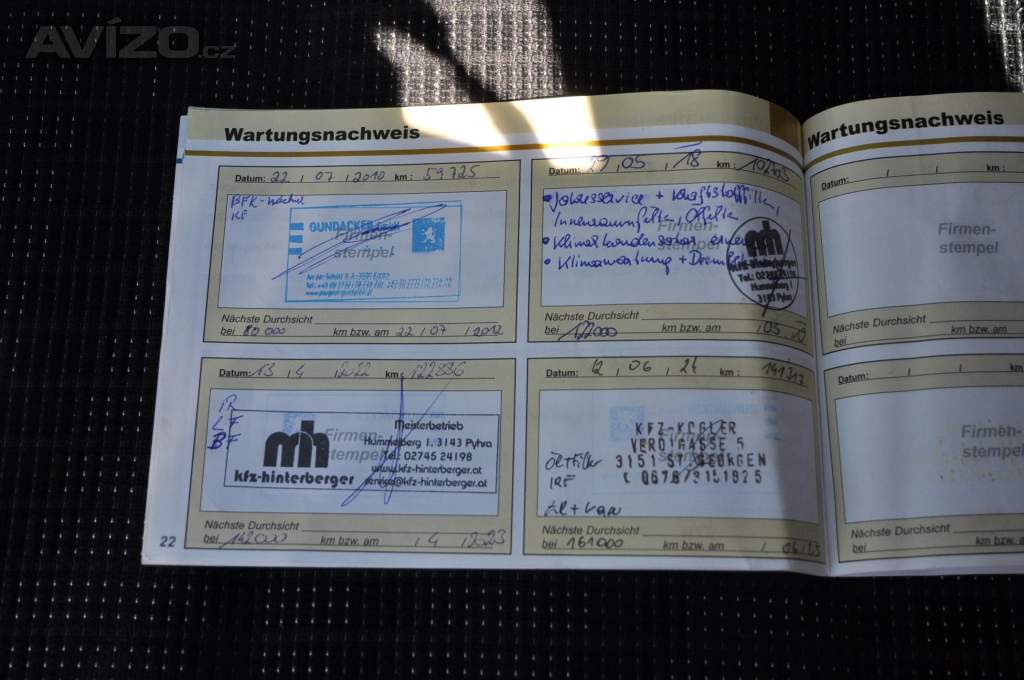 AVÍZO.cz
Wartungsnachweis
Datum: 22 . 07 . 2010 km: 59.725
GUNDACKER GmbH
Firmen-
stempel
Nächste Durchsicht
bei 80.000 km bzw. am 22 / 07 / 2012
Datum: 29 . 05 . 18 km:
Jahresservice + Kraftstofffilter,
Innenraumfilter, Ölfilter
Klimakondensator
Klimawartung +
Firmen-
stempel
mh
kfz-hinterberger
Tel.: 02745 24198
Hummelberg 1
3143 Pyhra
Nächste Durchsicht
bei 122000 km bzw. am / 05 .
Datum: 13 . 4 . 2022 km: 122836
IR
LF
BF
Firmen-
stempel
mh
kfz-hinterberger
Meisterbetrieb
Hummelberg 1, 3143 Pyhra
Tel.: 02745 24198
www.kfz-hinterberger.at
service@kfz-hinterberger.at
Nächste Durchsicht
bei 142000 km bzw. am / 4 / 2023
22
Datum: 12 . 06 . 24 km: 141317
KFZ-KOGLER
VERDIGASSE 5
3151 ST.GEORGEN
Ölfilter
IRF
Nächste Durchsicht
bei 161000 km bzw. am / 06 /
Wartungsnachweis
Datum: / /
Firmen-
stempel
Nächste Durchsicht
bei
Datum: / /
Firmen-
stempel
Nächste Durchsicht
bei km bzw. am